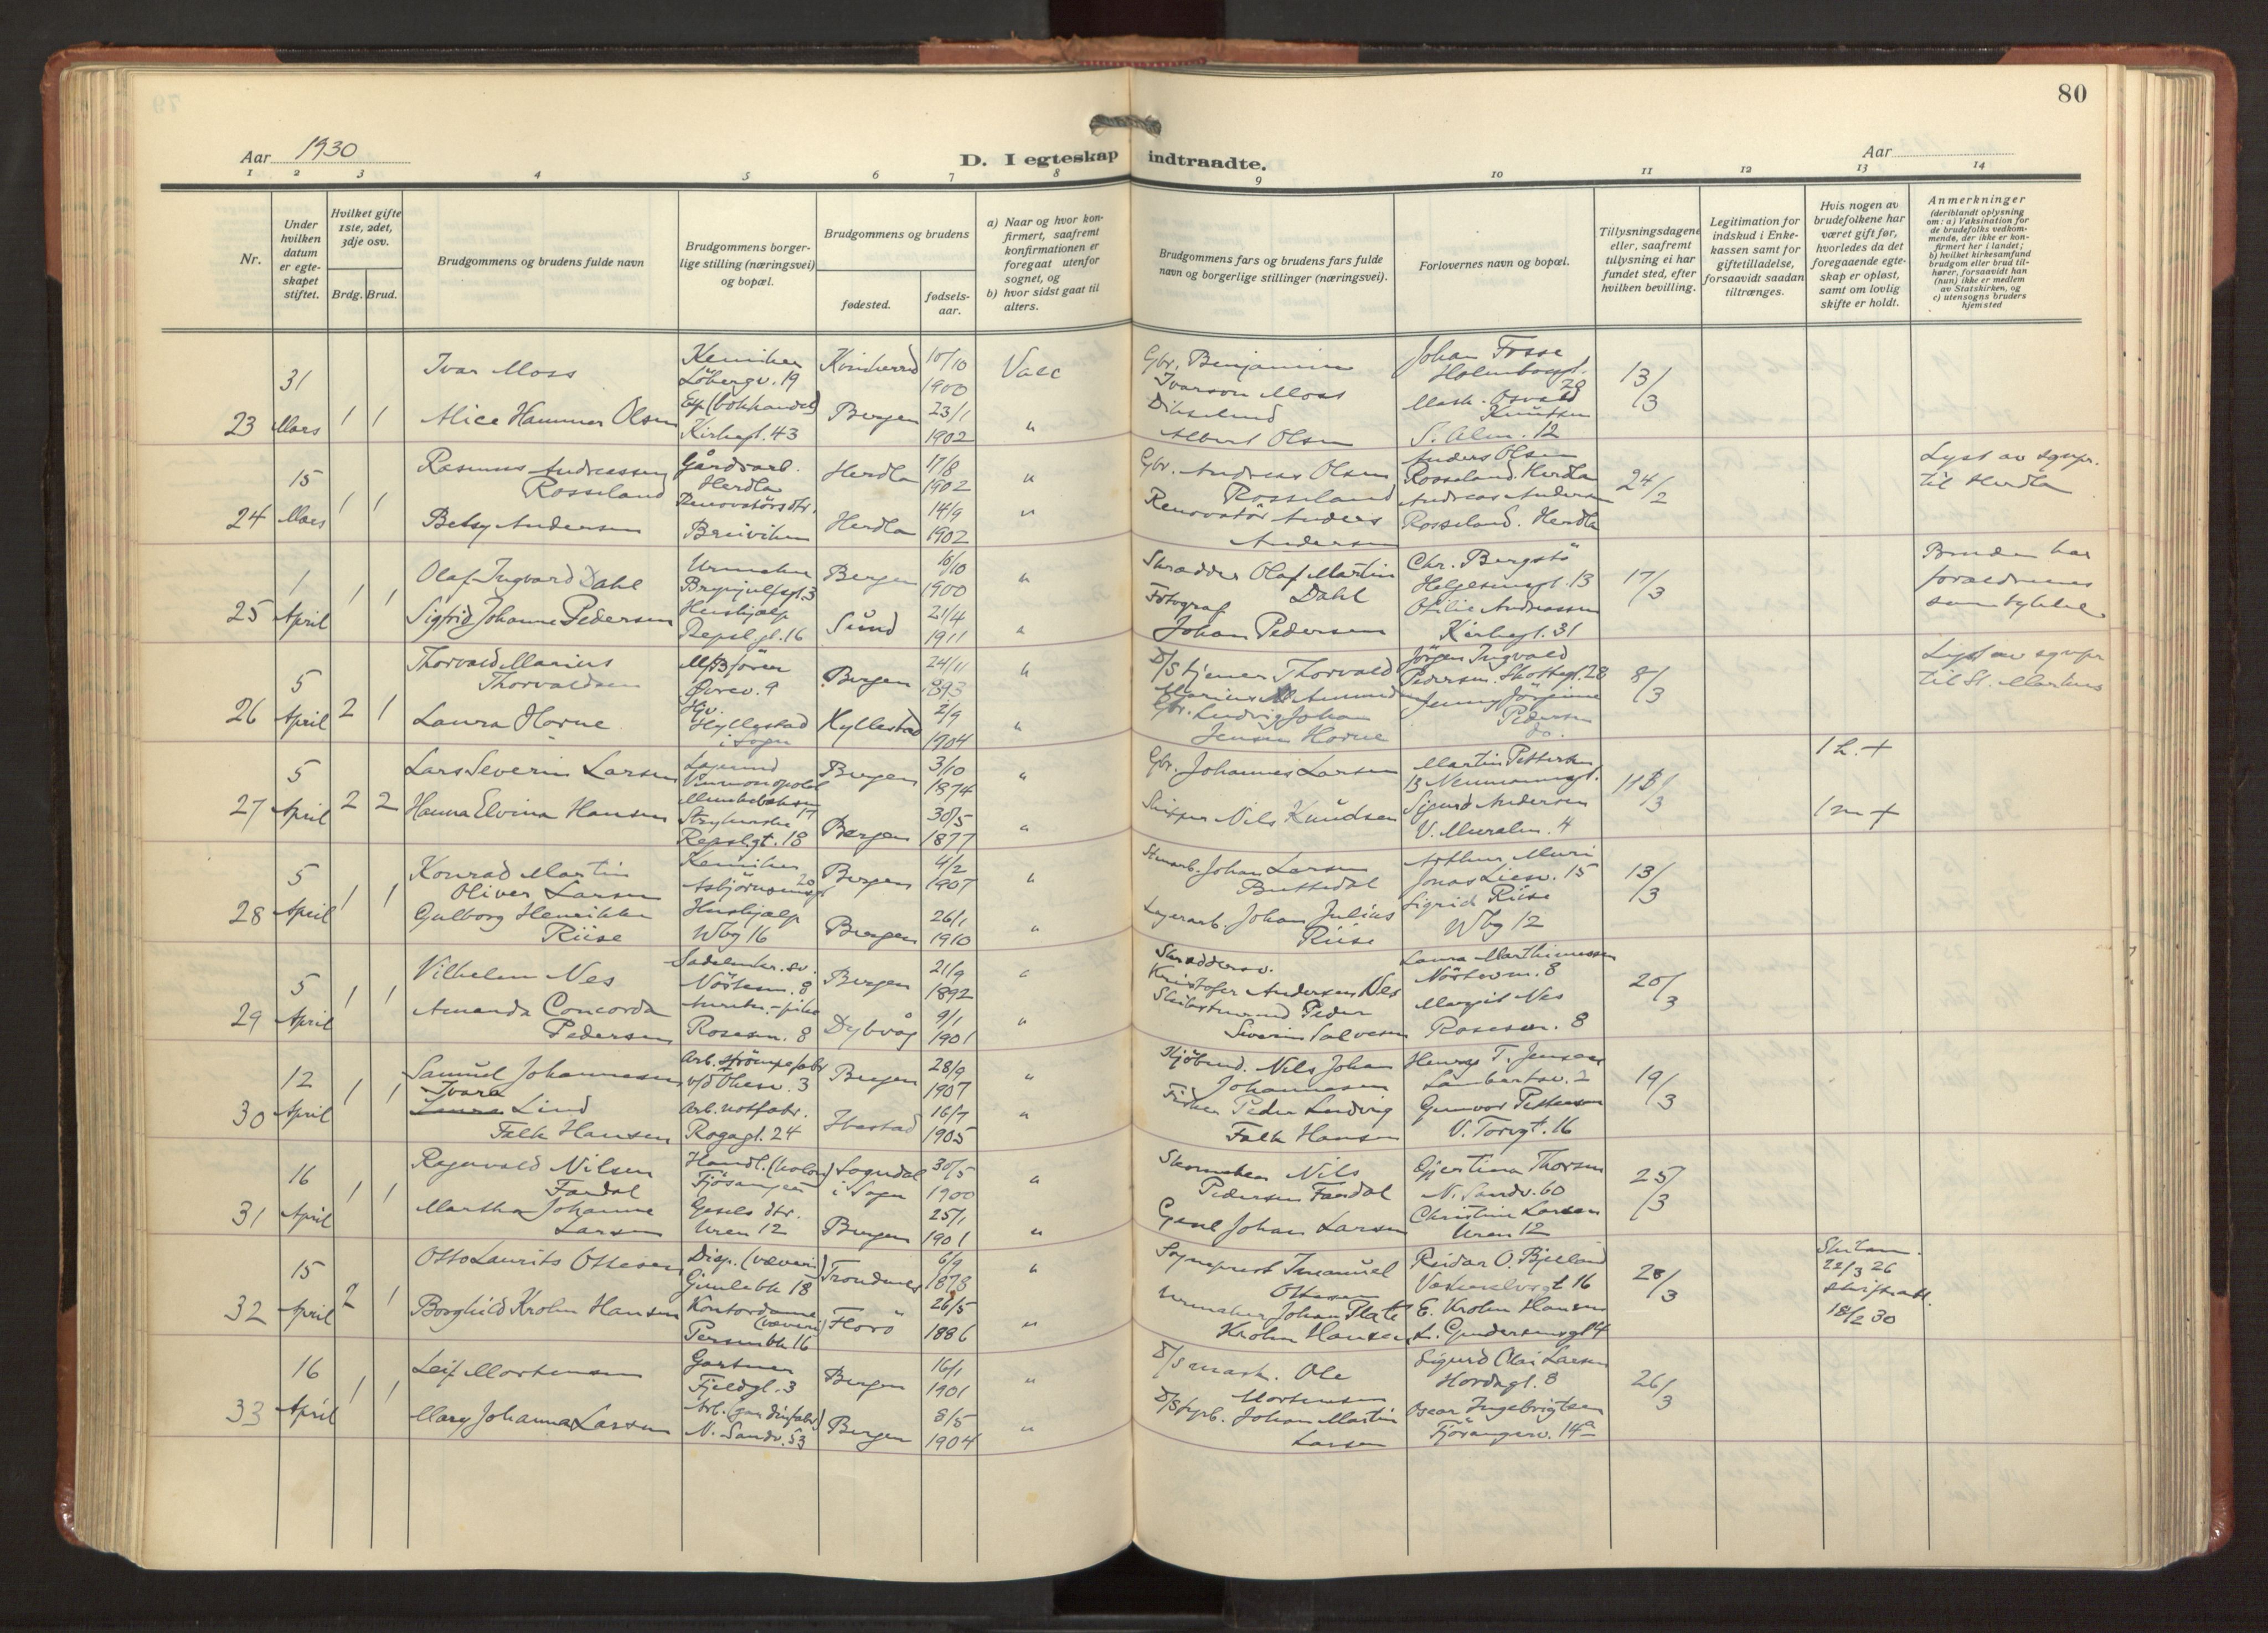 80
Aar 1930
D. I egteskap indtraadte.
Aar
1 2 3 4 5 6 7 8 9 10 11 12 13 14
Nr.
Under hvilken datum er egteskapet stiftet.
Hvilket gifte 1ste, 2det, 3dje osv.
Brdg. Brud.
Brudgommens og brudens fulde navn
Brudgommens borgerlige stilling (næringsvei) og bopæl.
Brudgommens og brudens
fødested.
fødselsaar.
a) Naar og hvor konfirmert, saafremt konfirmationen er foregaat utenfor sognet, og
b) hvor sidst gaat til alters.
Brudgommens fars og brudens fars fulde navn og borgerlige stillinger (næringsvei).
Forlovernes navn og bopæl.
Tillysningsdagene eller, saafremt tillysning ei har fundet sted, efter hvilken bevilling.
Legitimation for indskud i Enkekassen samt for giftetilladelse, forsaavidt saadan tiltrænges.
Hvis nogen av brudefolkene har været gift før, hvorledes da det foregaaende egteskap er opløst, samt om lovlig skifte er holdt.
Anmerkninger
(deriblandt oplysning om: a) Vaksination for de brudefolks vedkommende, der ikke er konfirmert her i landet; b) hvilket kirkesamfund brudgom eller brud tilhører, forsaavidt han (hun) ikke er medlem av Statskirken, og c) utensogns bruders hjemsted
23
31 Mars
1 1
Ivar Moss
Løbergv. 19
Kvinherred
10/10 1900
Vacc
Gbr. Benjamin Ivarson Moss
Johan Fosse
28
13/3
Alice Hammer Olsen
Exp (bokhandel)
Kirkegt. 43
Bergen
23/1 1902
"
Albert Olsen
Osvald Knutsen
S. Alm. 12
24
15 Mars
1 1
Rasmus Andreassen Rosseland
Gårdarb.
Herdla
Herdla
17/8 1902
"
Gbr. Andreas Olsen Rosseland
Anders Olsen
Rosseland. Herdla
24/2
Lyst av sgnpr. til Herdla
Betsy Andersen
Renovatørs dtr.
Breiviken
Herdla
14/9 1902
"
Renovatør Anders Andersen
Andreas Andersen
Rosseland. Herdla
25
1 April
1 1
Olaf Ingvard Dahl
Urmaker
Brynjulfsgt. 3
Bergen
16/10 1900
"
Skrædder Olaf Martin Dahl
Chr. Bergstø
Helgesensgt. 13
17/3
Bruden har forældrenes samtykke
Sigfrid Johanne Pedersen
Hushjælp
Repsl.gt. 16
Sund
21/4 1911
"
Fotograf Johan Pedersen
Otilie Andreassen
Kirkegt. 31
26
5 April
2 1
Thorvald Marius Thorvaldsen
M/B fører
Øvrev. 9
Bergen
24/11 1893
"
Thorvald Marius
Jørgen Ingvald Pedersen. Skottegt. 28
8/3
Lyst av sgnpr til St. Markus
Laura Horne
Hyllestad i Sogn
Hyllestad
2/9 1904
"
Gbr. Ludvig Johan Jensen Horne
Jenny Jørgine Pedersen
do.
27
5 April
2 2
Lars Severin Larsen
Vinmonopolet
17
Bergen
3/10 1874
"
Gbr. Johannes Larsen
Martin Pettersen
13 Neumannsgt.
11/3
1 h. +
Hanna Elvina Hansen
Strykerske
Repslgt. 18
Bergen
30/5 1877
"
Skipper Nils Knudsen
Sigurd Andersen
V. Muralm. 4
1 m +
28
5 April
1 1
Konrad Martin Oliver Larsen
Asbjørnsensgt 20
Bergen
4/2 1907
"
Stenarb. Johan Larsen
Arthur Muri
Jonas Liesv. 15
13/3
Gulborg Henrikke Riise
Hushjælp
Wbg 16
Bergen
26/1 1910
"
Lagerarb. Johan Julius Riise
Sigrid Riise
Wbg 12
29
5 April
1 1
Vilhelm Nes
Sadelmker. sv.
Nøstem. 8
Bergen
21/9 1892
"
Skræddersv. Kristofer Andersen Nes
Laura Marthinussen
Nøstem. 8
20/3
Amanda Concorda Pedersen
Rosesm. 8
Dybvåg
9/1 1901
"
Peder Severin Salvesen
Margit Nes
Rosesm. 8
30
12 April
1 1
Samuel Johannesen
Arb. strømpefabr
v/d Ohesv. 3
Bergen
28/9 1907
"
Kjøbmd. Nils Johan Johannesen
Henry T. Jensen
Lambertsv. 2
19/3
Ivara Lind Falk Hansen
Arb. notfabr.
Rogagt. 24
Ibestad
16/7 1905
"
Fisker Peder Ludvig Falk Hansen
Gunvor Pettersen
V. Torvgt. 16
31
16 April
1 1
Ragnvald Nilsen Fardal
Handl. (kolon)
Fjøsanger
Sogndal i Sogn
30/5 1900
"
Skomaker Nils Pedersen Fardal
Gjertina Thorsen
N. Sandv. 60
25/3
Martha Johanne Larsen
Gesels dtr.
Uren 12
Bergen
25/1 1901
"
Gesel Johan Larsen
Christine Larsen
Uren 12
32
15 April
2 1
Otto Laurits Ottesen
Disp. (væveri)
Gimlebk 18
Trondenes
6/9 1873
"
Sogneprest Imanuel Ottesen
Reidar O. Bjelland
16
28/3
Skilsm. 22/3 26
skifteatt. 18/2 30
Borghild Krohn Hansen
Kontordame (væveri)
Persenbk 16
Florø
26/5 1886
"
Urmaker Johan Plate Krohn Hansen
E. Krohn Hansen
L. Gundersensgt 4
33
16 April
1 1
Leif Mortensen
Gartner
Fjeldgt. 3
Bergen
16/1 1901
"
D/S mask. Ole Mortensen
Sigurd Olai Larsen
Hordagt. 8
26/3
Mary Johanna Larsen
Arb. (gardinfabr)
N. Sandv. 53
Bergen
8/5 1904
"
D/S fyrb. Johan Martin Larsen
Oscar Ingebrigtsen
Fjøsangerv. 14a